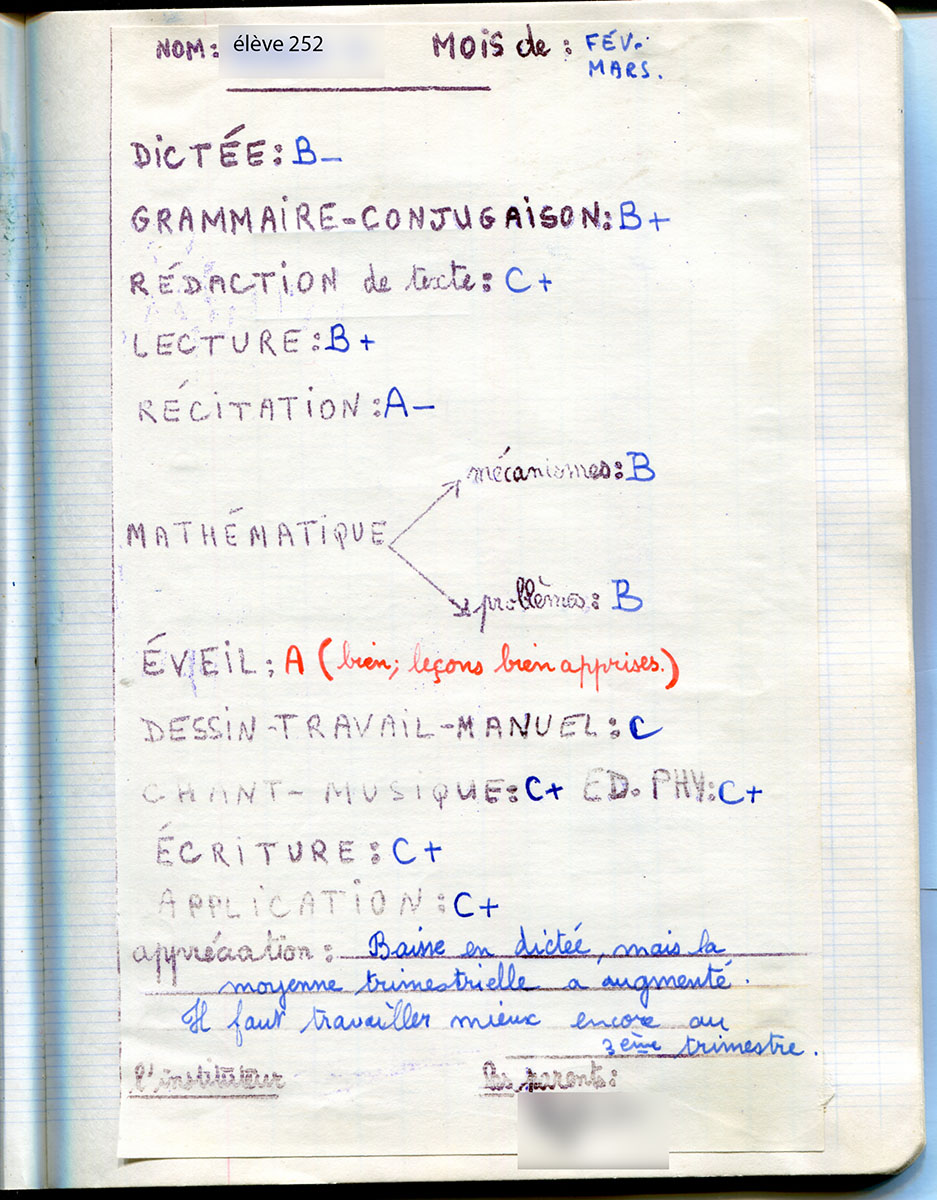 NOM: élève 252 MOIS de : FÉV.
MARS.
DICTÉE: B-
GRAMMAIRE-CONJUGAISON: B+
RÉDACTION de texte: C+
LECTURE: B+
RÉCITATION: A-
mécanismes: B
MATHÉMATIQUE
problèmes: B
ÉVEIL: A (bien; leçons bien apprises.)
DESSIN-TRAVAIL-MANUEL: C
CHANT-MUSIQUE: C+ ED. PHY: C+
ÉCRITURE: C+
APPLICATION: C+
appréciation: Baisse en dictée, mais la
moyenne trimestrielle a augmenté.
Il faut travailler mieux encore au
3ème trimestre.
l'instituteur Les parents: